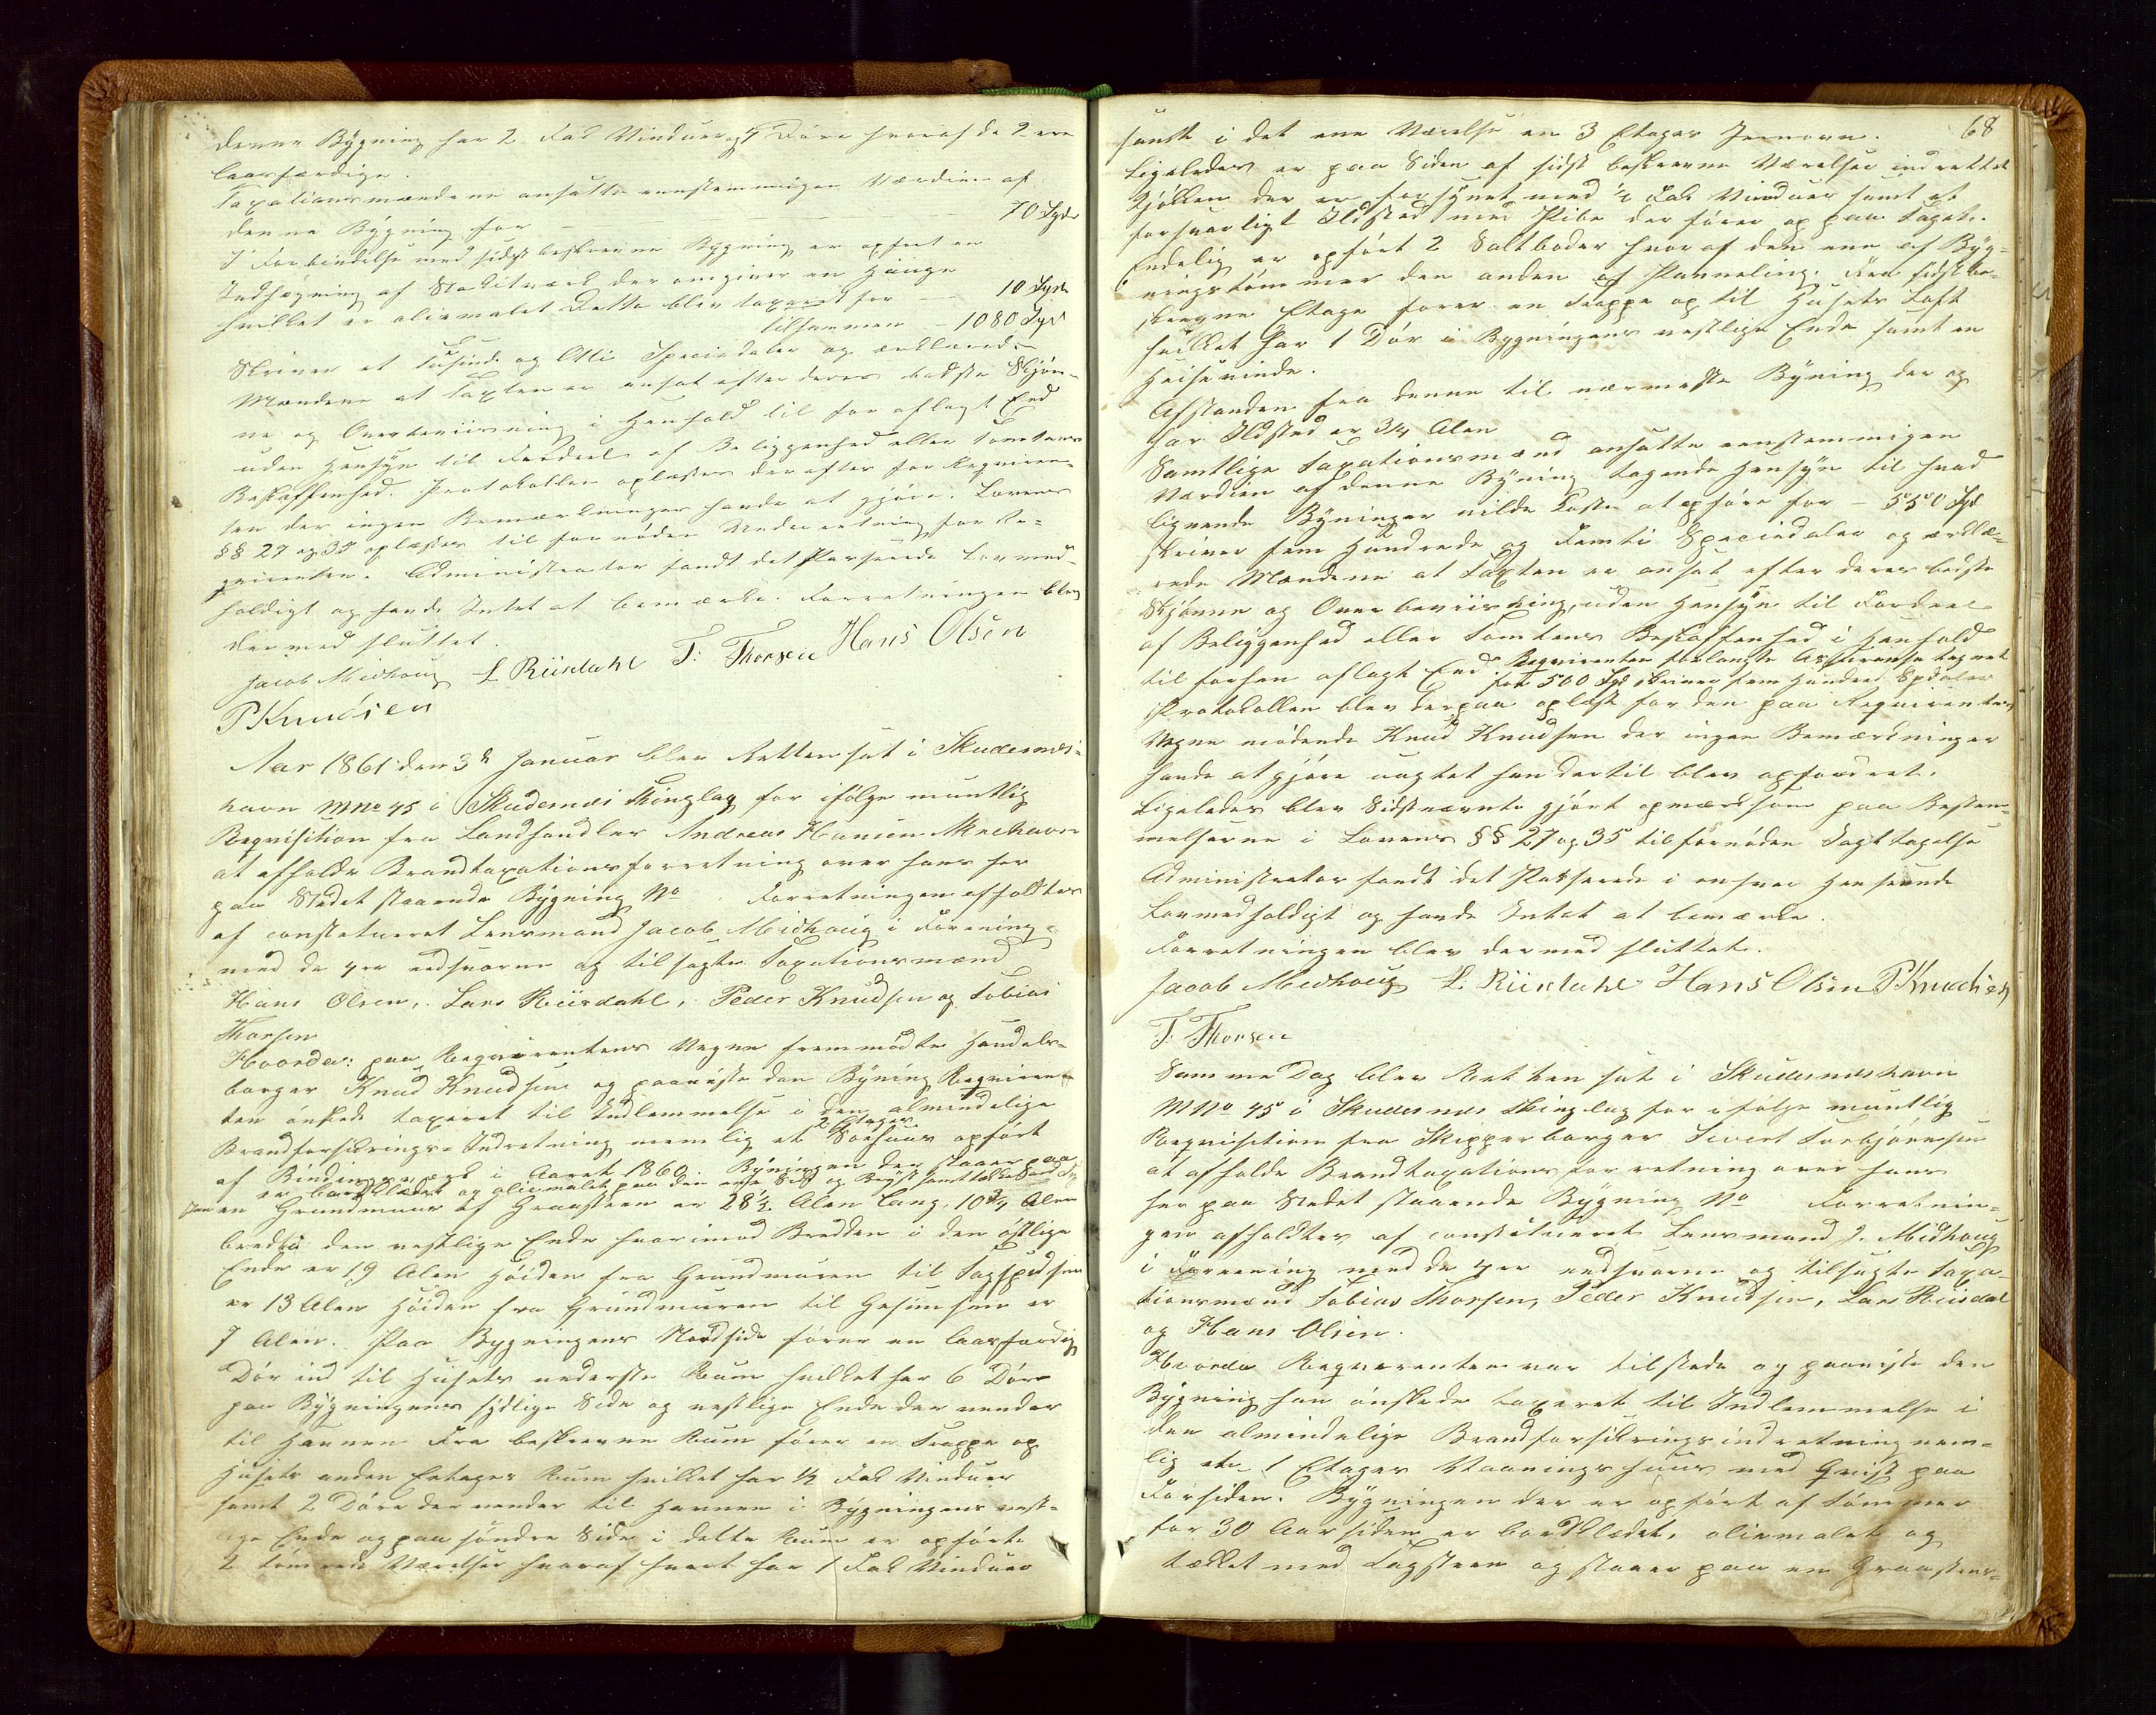 denne Bÿgning har 2 Fad Vinduer og 4 Döre hvoraf de 2 ere
laasfærdige.
Taxationsmændene ansatte eenstemmigen Værdien af
denne Bÿgning for — — — 70 Spd
I Forbindelse med sidst beskrevne Bÿgning er opført en
Indhegning af Stakitværk der omgiver en Hauge
hvilket er oliemalet Dette blev taxeret for — 10 Spd
tilsammen — 1080 Spd
Skriver et Tusinde og Otti Speciedaler og erklærede
Mændene at Taxten er ansat efter deres bedste Skjøn-
ne og Overbeviisning i Henhold til før aflagt Eed
uden Hensyn til Fordeel af Beliggenhed eller Tomtens
Beskaffenhed. Protokollen oplæstes derefter for Reqviren-
ten der ingen Bemærkninger havde at gjøre. Lovens
§§ 27 og 35 oplæstes til fornøden Underretning for Re-
qvirenten. Administrator fandt det Passerede lovmed-
holdigt og havde Intet at bemærke. Forretningen blev
dermed sluttet.
Jacob Midhoug L Riisdahl T: Thorsen Hans Olsen
P Knudsen
Aar 1861 den 3de Januar blev Retten sat i Skudesnes-
havn M No 45 i Skudesnæs Thinglag for ifølge muntlig
Reqvisition fra Landhandler Andreas Hansen Aknehavn
at afholde Brandtaxationsforretning over hans her
paa Stedet staaende Bÿgning No . Forretningen afholdtes
af constetueret Lensmand Jacob Midhoug i Forening
med de 4re eedsvorne og tilsagte Taxationsmænd
Hans Olsen, Lars Riisdahl, Peder Knudsen og Tobias
Thorsen
Hvorda: paa Reqvirentens Vegne fremmødte Handels-
borger Knud Knudsen og paaviste den Bÿning Reqviren-
ten ønskede taxeret til Indlemmelse i den almindelige
Brandforsikrings-Indretning nemlig et 2 Etages Søehuus opført
af Bindingsværk i Aaret 1860. Bÿningen der staaer paa
er bordklædt og oliemalet paa den ene Side og
en Grundmuur af Graasteen er 28½ Alen lang, 10¾ Alen
bred i den vestlige Ende hvorimod Bredden i den østlige
Ende er 19 Alen Høiden fra Grundmuren til Tagspidsen
er 13 Alen Høiden fra Grundmuren til Gesimsen er
7 Alen. Paa Bygningens Nordside fører en laasfærdig
Dör ind til Husets nederste Rum hvilket har 6 Döre
paa Bÿgningens sÿdlige Side og vestlige Ende der vender
til Havnen Fra beskrevne Rum fører en Trappe op
Husets anden Etages Rum hvilket har ½ Fad Vinduer
samt 2 Döre der vender til Havnen i Bÿgningens vest-
lige Ende og paa søndre Side i dette Rum er opførte
2 tømrede Værelser hvoraf hvert har 1 Fad Vinduer
68
samt i det ene Værelse en 3 Etages Jernovn.
Ligeledes er paa Siden af sidst beskrevne Værelser indrettet
Kjøkken der er forsÿnet med ½ Fad Vinduer samt et
forsvarligt Ildsted med Pibe der fører op paa Taget.
Endelig er opført 2 Saltboder hvoraf den ene af Bÿg-
ningstømmer den anden af Panneling. Fra sidst be-
skrevne Etage fører en Trappe op til Husets Loft
hvilket har 1 Dör i Bygningens vestlige Ende samt en
Heisevinde.
Afstanden fra denne til nærmeste Bÿning der og
har Ildsted er 34 Alen
Samtlige Taxationsmænd ansatte eenstemmigen
Værdien af denne Bÿning tagende Hensÿn til hvad
lignende Bÿninger vilde koste at opføre for — 550 Spd
skriver fem Hundrede og Femti Speciedaler og erklæ-
rede Mændene at Taxten er ansat efter deres bedste
Skjønne og Overbeviisning, uden Hensÿn til Fordeel
af Beliggenhed eller Tomtens Beskaffenhed i Henhold
til forhen aflagt Eed. Reqvirenten forlangte Assurance tegnet
for 500 Spd skriver fem Hundred Spdaler
Protokollen blev derpaa oplæst for den paa Reqvirentens
Vegne mødende Knud Knudsen der ingen Bemærkninger
havde at gjøre uagtet han dertil blev opfordret.
Ligeledes blev Sidstnævnte gjort opmærksom paa Bestem-
melserne i Lovens §§ 27 og 35 til fornøden Iagttagelse
Administrator fandt det Passerede i enhver Henseende
Lovmedholdigt og havde Intet at bemærke.
Forretningen blev dermed sluttet.
Jacob Midhoug L. Riisdahl Hans Olsen P Knudsen
T. Thorsen
Samme Dag blev Retten sat i Skudesneshavn
M No 45 i Skudesnæs Thinglag for ifølge muntlig
Reqvisition fra Skipperborger Sivert Torbjørnsen
at afholde Brandtaxationsforretning over hans
her paa Stedet staaende Bÿgning No Forretnin-
gen afholdtes af constitueret Lensmand J. Midhoug
i Forening med de 4re eedsvorne og tilsagte Taxa-
tionsmænd Tobias Thorsen, Peder Knudsen, Lars Riisdal
og Hans Olsen.
Hvorda Reqvirenten var tilstede og paaviste den
Bÿgning han ønskede taxeret til Indlemmelse i
den almindelige Brandforsikringsindretning nem-
lig et 1 Etages Vaaningshuus med Qvist paa
Forsiden. Bÿgningen der er opført af Tømmer
for 30 Aar siden er bordklædet, oliemalet og
tækket med Tagsteen og staaer paa en Graasteens-